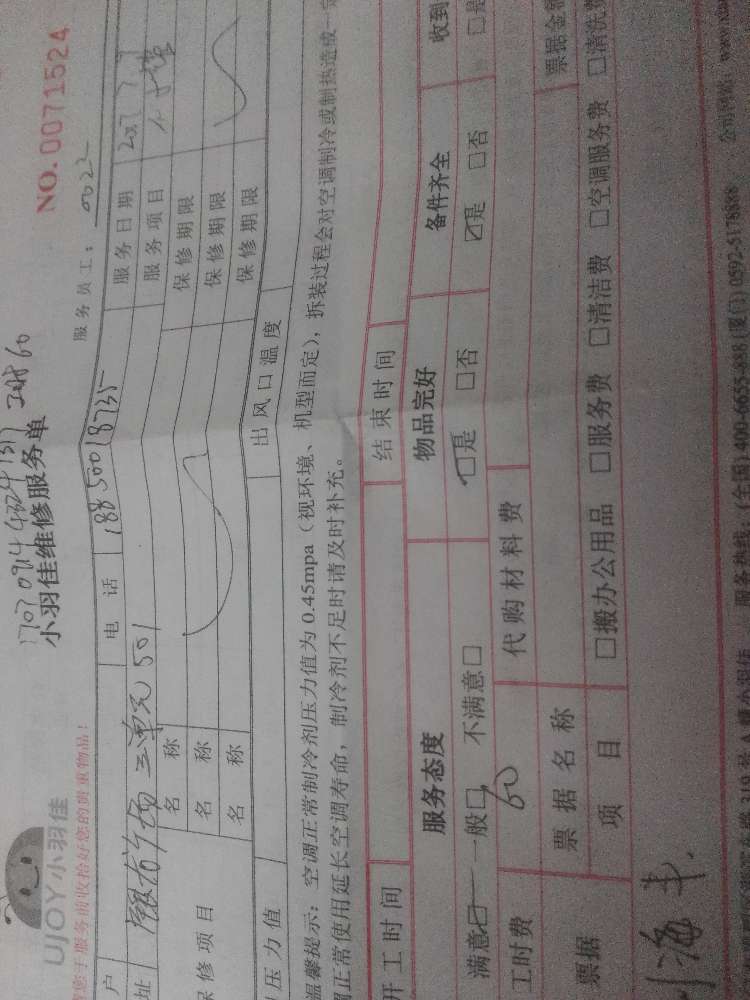 UJOY小羽佳
小羽佳维修服务单
NO.0071524
于服务前收拾好您的贵重物品！
服务员工：0022
户
电 话 18850018735
服务日期
址 三单元501
服务项目
保修项目
名 称
保修期限
名 称
保修期限
名 称
保修期限
压力值
出风口温度
温馨提示：空调正常制冷剂压力值为 0.45mpa（视环境、机型而定），拆装过程会对空调制冷或制热造成一定
正常使用延长空调寿命，制冷剂不足时请及时补充。
开工时间
结束时间
服务态度
物品完好
备件齐全
收到
满意☑ 一般□ 不满意□
☑是 □否
☑是 □否
□是
工时费 60
代购材料费
票据
票据名称
票据金额
项 目
□搬办公用品 □服务费 □清洁费 □空调服务费 □清洗费
服务热线：(全国)400-6655-888 (厦门) 0592-5178888
公司网站：www.